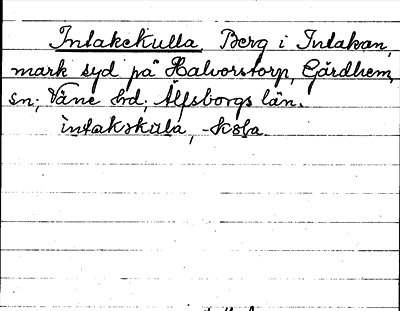 Intakekulla Berg i Intakan,
mark syd på Halvorstorp, Gärdhem,
sn; Väne hd; Älfsborgs län.
intakskula, -kola